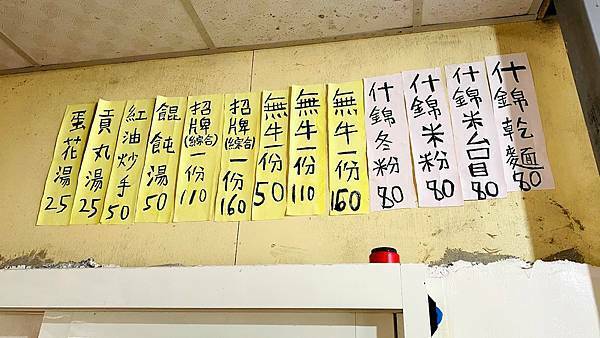 什錦乾麵 80
什錦米台目 80
什錦米粉 80
什錦冬粉 80
無牛一份 160
無牛一份 110
無牛一份 50
招牌(綜合)一份 160
招牌(綜合)一份 110
餛飩湯 50
紅油炒手 50
貢丸湯 25
蛋花湯 25